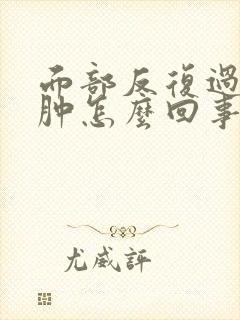 而部反復過
肿怎麼回事
尤威評